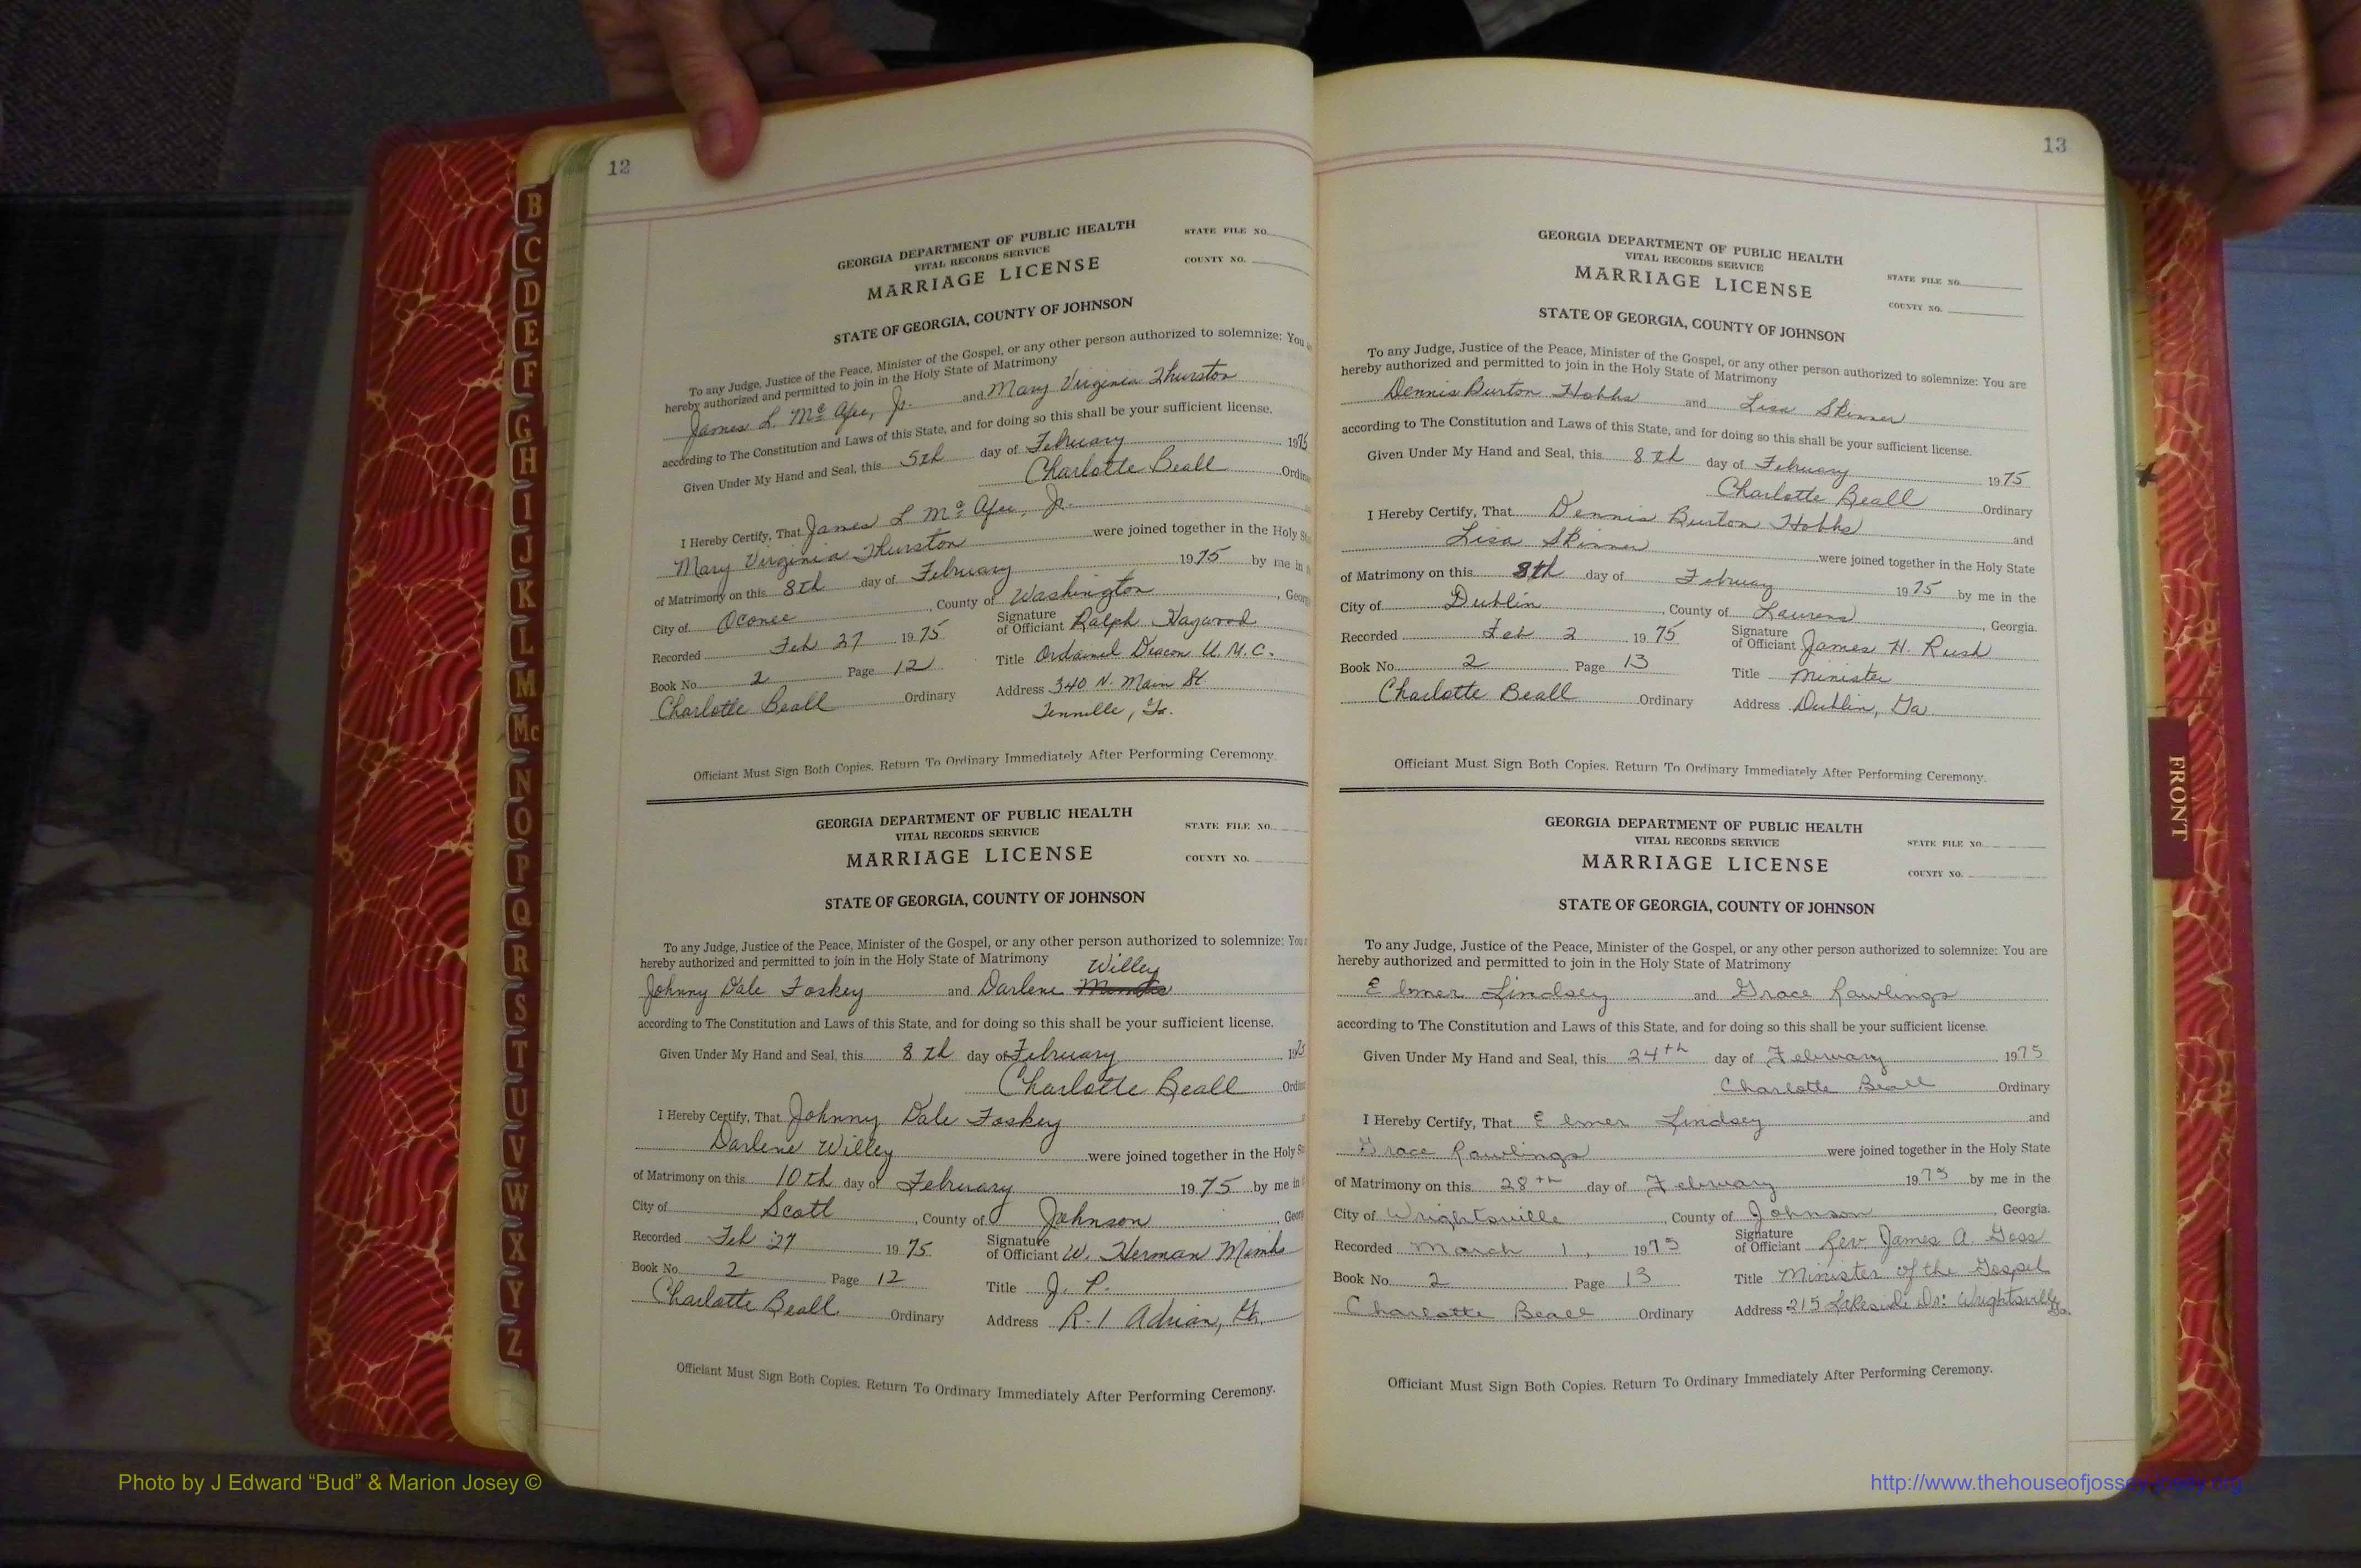 12
GEORGIA DEPARTMENT OF PUBLIC HEALTH
VITAL RECORDS SERVICE
MARRIAGE LICENSE
STATE FILE NO.
COUNTY NO.
STATE OF GEORGIA, COUNTY OF JOHNSON
To any Judge, Justice of the Peace, Minister of the Gospel, or any other person authorized to solemnize: You
hereby authorized and permitted to join in the Holy State of Matrimony
James L. Mc Afee, Jr. and Mary Virginia Thurston
according to The Constitution and Laws of this State, and for doing so this shall be your sufficient license.
Given Under My Hand and Seal, this 5th day of February 1975
Charlotte Beall Ordin
I Hereby Certify, That James L Mc Afee, Jr.
Mary Virginia Thurston were joined together in the Holy
of Matrimony on this 8th day of February 1975 by me in
City of Oconee, County of Washington, Georg
Recorded Feb 27 1975 Signature of Officiant Ralph Haywood
Book No. 2 Page 12 Title Ordained Deacon U.M.C.
Charlotte Beall Ordinary Address 340 N. Main St.
Tennille, Ga.
Officiant Must Sign Both Copies. Return To Ordinary Immediately After Performing Ceremony.
GEORGIA DEPARTMENT OF PUBLIC HEALTH
VITAL RECORDS SERVICE
MARRIAGE LICENSE
STATE FILE NO.
COUNTY NO.
STATE OF GEORGIA, COUNTY OF JOHNSON
To any Judge, Justice of the Peace, Minister of the Gospel, or any other person authorized to solemnize: You
hereby authorized and permitted to join in the Holy State of Matrimony
Willey
Johnny Dale Foskey and Darlene
according to The Constitution and Laws of this State, and for doing so this shall be your sufficient license.
Given Under My Hand and Seal, this 8th day of February 1975
Charlotte Beall Ordin
I Hereby Certify, That Johnny Dale Foskey
Darlene Willey were joined together in the Holy
of Matrimony on this 10th day of February 1975 by me in
City of Scott, County of Johnson, Georg
Recorded Feb 27 1975 Signature of Officiant W. Herman Mimbs
Book No. 2 Page 12 Title J. P.
Charlotte Beall Ordinary Address R-1 Adrian, Ga.
Officiant Must Sign Both Copies. Return To Ordinary Immediately After Performing Ceremony.
13
GEORGIA DEPARTMENT OF PUBLIC HEALTH
VITAL RECORDS SERVICE
MARRIAGE LICENSE
STATE FILE NO.
COUNTY NO.
STATE OF GEORGIA, COUNTY OF JOHNSON
To any Judge, Justice of the Peace, Minister of the Gospel, or any other person authorized to solemnize: You are
hereby authorized and permitted to join in the Holy State of Matrimony
Dennis Burton Hobbs and Lisa Skinner
according to The Constitution and Laws of this State, and for doing so this shall be your sufficient license.
Given Under My Hand and Seal, this 8th day of February 1975
Charlotte Beall Ordinary
I Hereby Certify, That Dennis Burton Hobbs and
Lisa Skinner were joined together in the Holy State
of Matrimony on this 8th day of February 1975 by me in the
City of Dublin, County of Laurens, Georgia.
Recorded Feb 2 1975 Signature of Officiant James H. Rush
Book No. 2 Page 13 Title Minister
Charlotte Beall Ordinary Address Dublin, Ga.
Officiant Must Sign Both Copies. Return To Ordinary Immediately After Performing Ceremony.
GEORGIA DEPARTMENT OF PUBLIC HEALTH
VITAL RECORDS SERVICE
MARRIAGE LICENSE
STATE FILE NO.
COUNTY NO.
STATE OF GEORGIA, COUNTY OF JOHNSON
To any Judge, Justice of the Peace, Minister of the Gospel, or any other person authorized to solemnize: You are
hereby authorized and permitted to join in the Holy State of Matrimony
Elmer Lindsey and Grace Rawlings
according to The Constitution and Laws of this State, and for doing so this shall be your sufficient license.
Given Under My Hand and Seal, this 24th day of February 1975
Charlotte Beall Ordinary
I Hereby Certify, That Elmer Lindsey and
Grace Rawlings were joined together in the Holy State
of Matrimony on this 28th day of February 1975 by me in the
City of Wrightsville, County of Johnson, Georgia.
Recorded March 1, 1975 Signature of Officiant Rev. James A. Goss
Book No. 2 Page 13 Title Minister of the Gospel
Charlotte Beall Ordinary Address 215 Lakeside Dr. Wrightsville, Ga.
Officiant Must Sign Both Copies. Return To Ordinary Immediately After Performing Ceremony.
B
C
D
E
F
G
H
I
J
K
L
M
Mc
N
O
P
Q
R
S
T
U
V
W
X
Y
Z
FRONT
Photo by J Edward “Bud” & Marion Josey ©
http://www.thehouseofjossey-josey.org